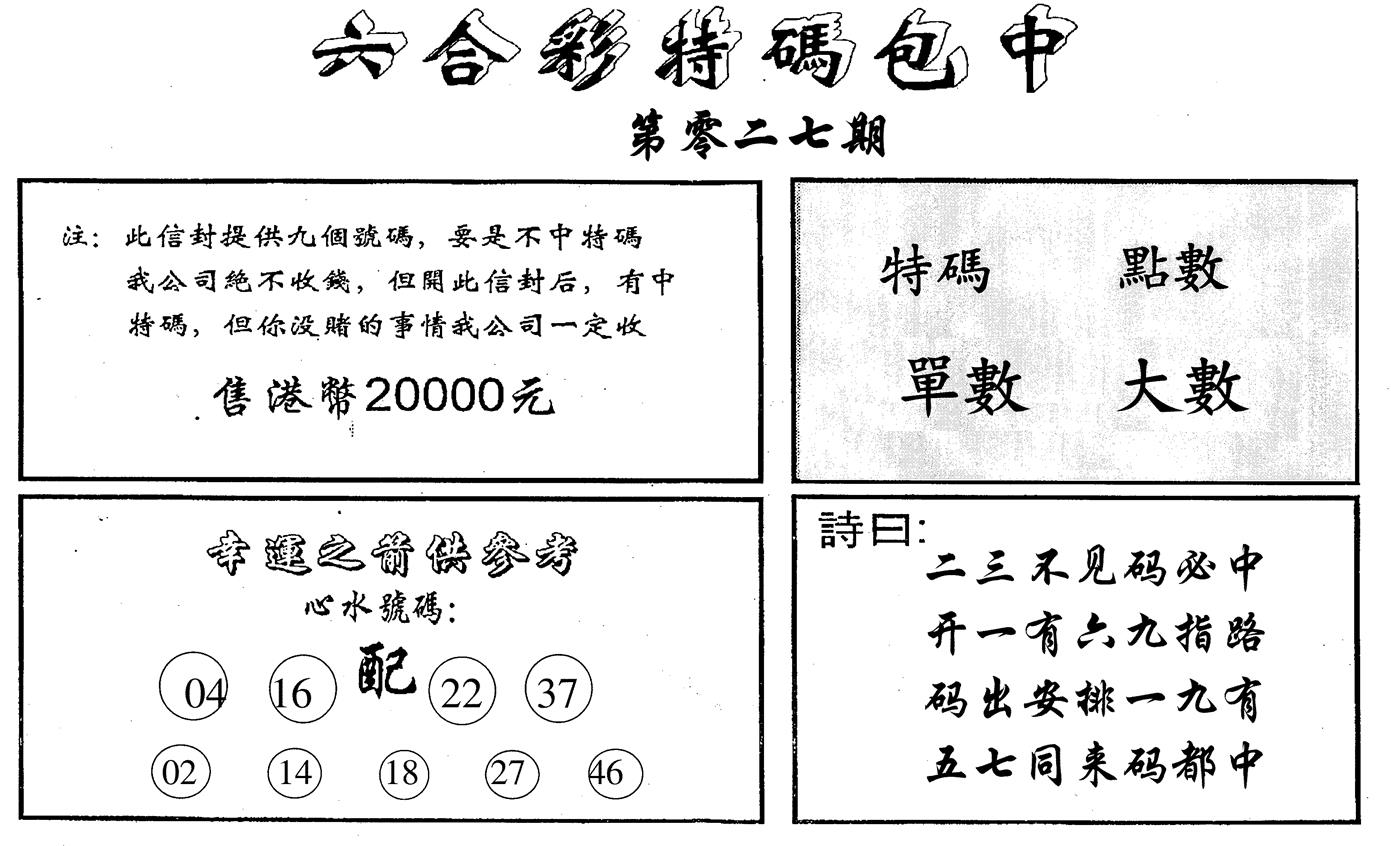 六合彩特碼包中
第零二七期
注：此信封提供九個號碼，要是不中特碼
我公司絶不收錢，但開此信封后，有中
特碼，但你没賭的事情我公司一定收
售港幣20000元
特碼 點數
單數 大數
幸運之箭供參考
心水號碼：
04 16 配 22 37
02 14 18 27 46
詩曰：
二三不见码必中
开一有六九指路
码出安排一九有
五七同来码都中